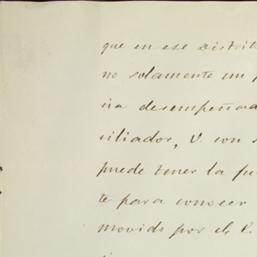 que en ese distrit
no solamente un p
ira desempeñad
ciliador, V. con s
puede tener la fu
te para conocer
movido por el P.